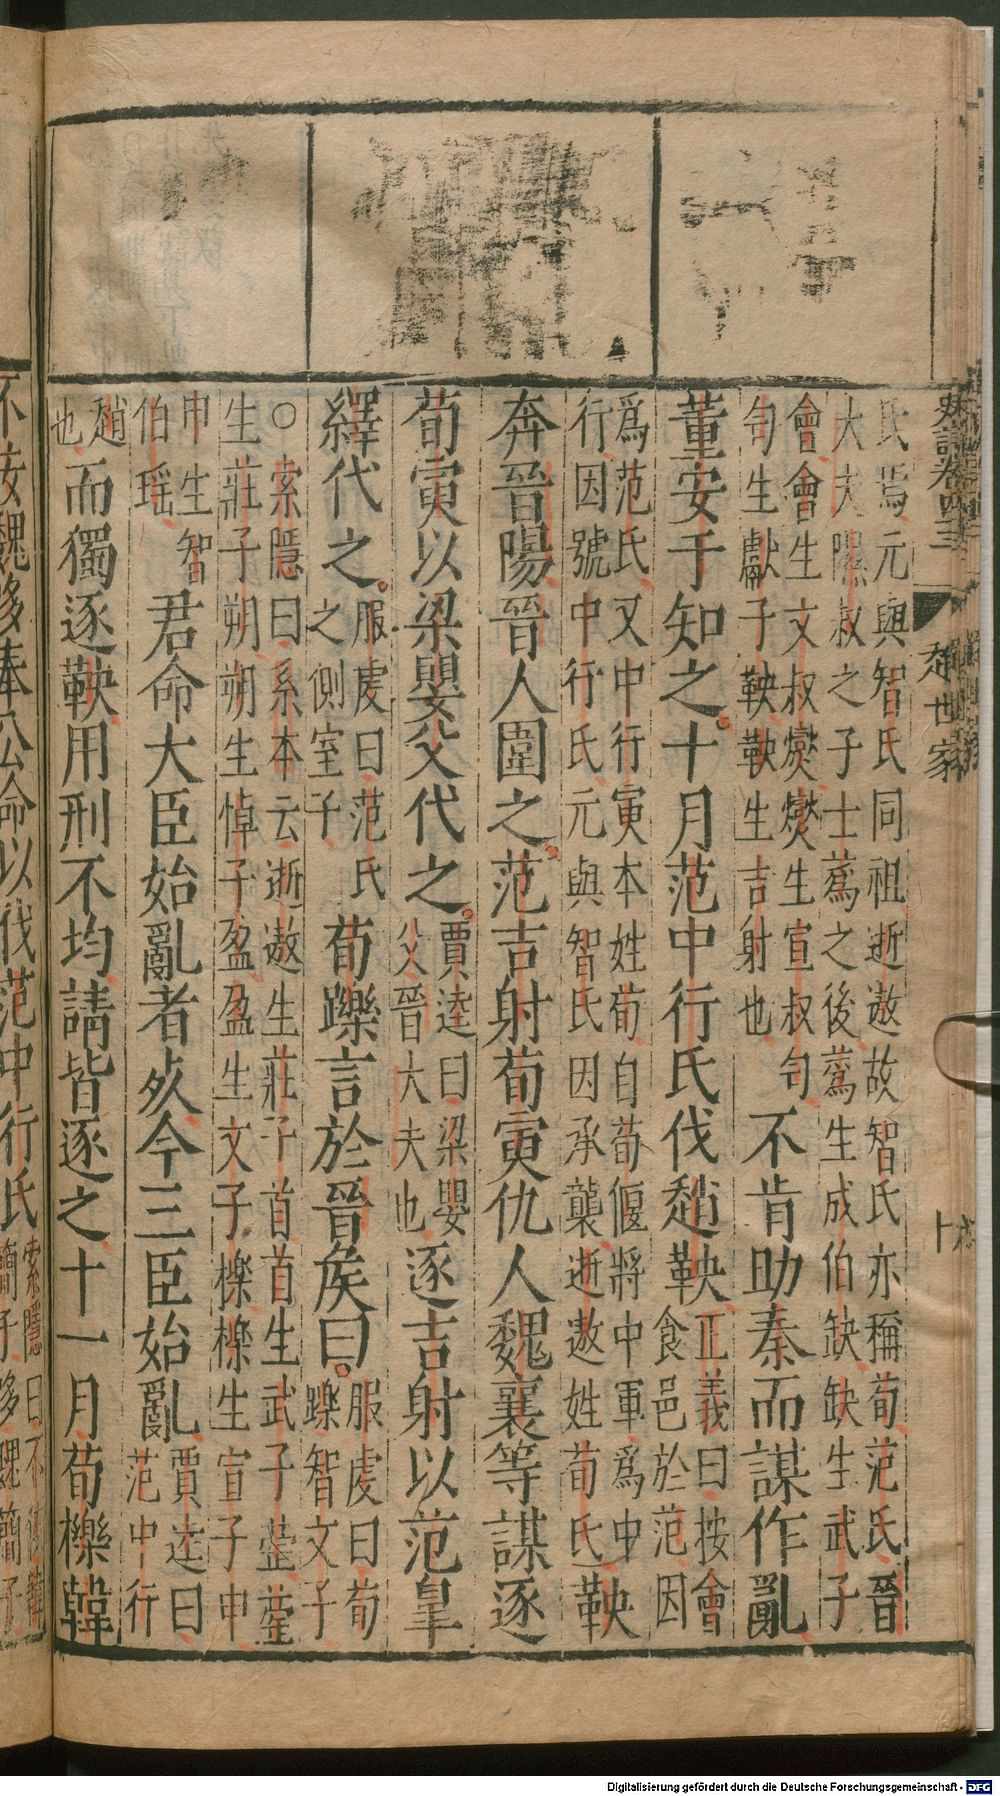 史記卷四十三 趙世家 十
氏焉元與智氏同祖逝遨故智氏亦稱荀范氏晉
大夫隰叔之子士蒍之後蒍生成伯缺缺生武子
會會生文叔燮燮生宣叔匄
匄生獻子鞅鞅生吉射也
不肯助秦而謀作亂
董安于知之十月范中行氏伐趙鞅
正義曰按會
食邑於范因
爲范氏又中行寅本姓荀自荀偃將中軍爲中
行因號中行氏元與智氏因承襲逝遨姓荀氏
鞅
奔晉陽晉人圍之范吉射荀寅仇人魏襄等謀逐
荀寅以梁嬰父代之
賈逵曰梁嬰
父晉大夫也
逐吉射以范皐
繹代之
服虔曰范氏
之側室子
荀躒言於晉侯曰
服虔曰荀
躒智文子
○索隱曰系本云逝遨生莊子首首生武子䓨䓨
生莊子朔朔生悼子盈盈生文子櫟櫟生宣子申
申生智
伯瑶
君命大臣始亂者死今三臣始亂
賈逵曰
范中行
趙
也
而獨逐鞅用刑不均請皆逐之十一月荀櫟韓
不佞魏哆奉公命以伐范中行氏
索隱曰不佞韓
簡子哆魏簡子
Digitalisierung gefördert durch die Deutsche Forschungsgemeinschaft - DFG